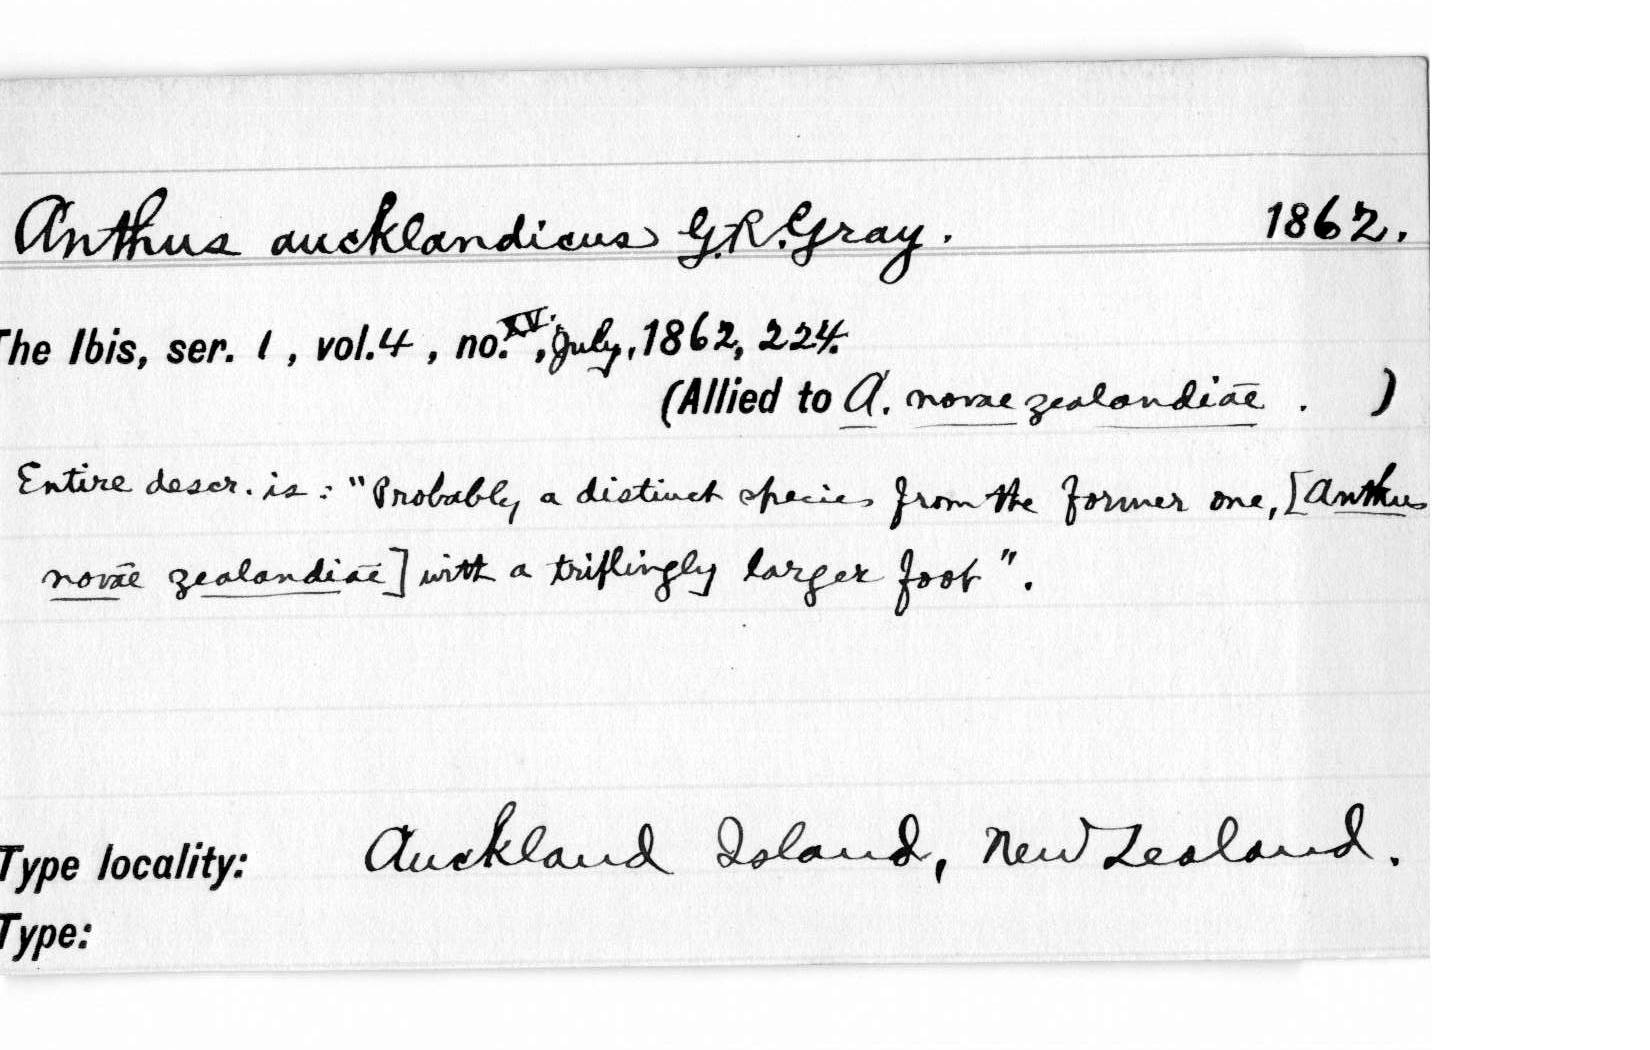 Anthus aucklandicus G.R.Gray. 1862.
The Ibis, ser. 1, vol. 4, no. XV., July, 1862, 224.
(Allied to A. novae zealandiae . )
Entire descr. is: "Probably a distinct species from the former one, [Anthus
novae zealandiae] with a triflingly larger foot".
Type locality: Auckland Island, New Zealand.
Type: